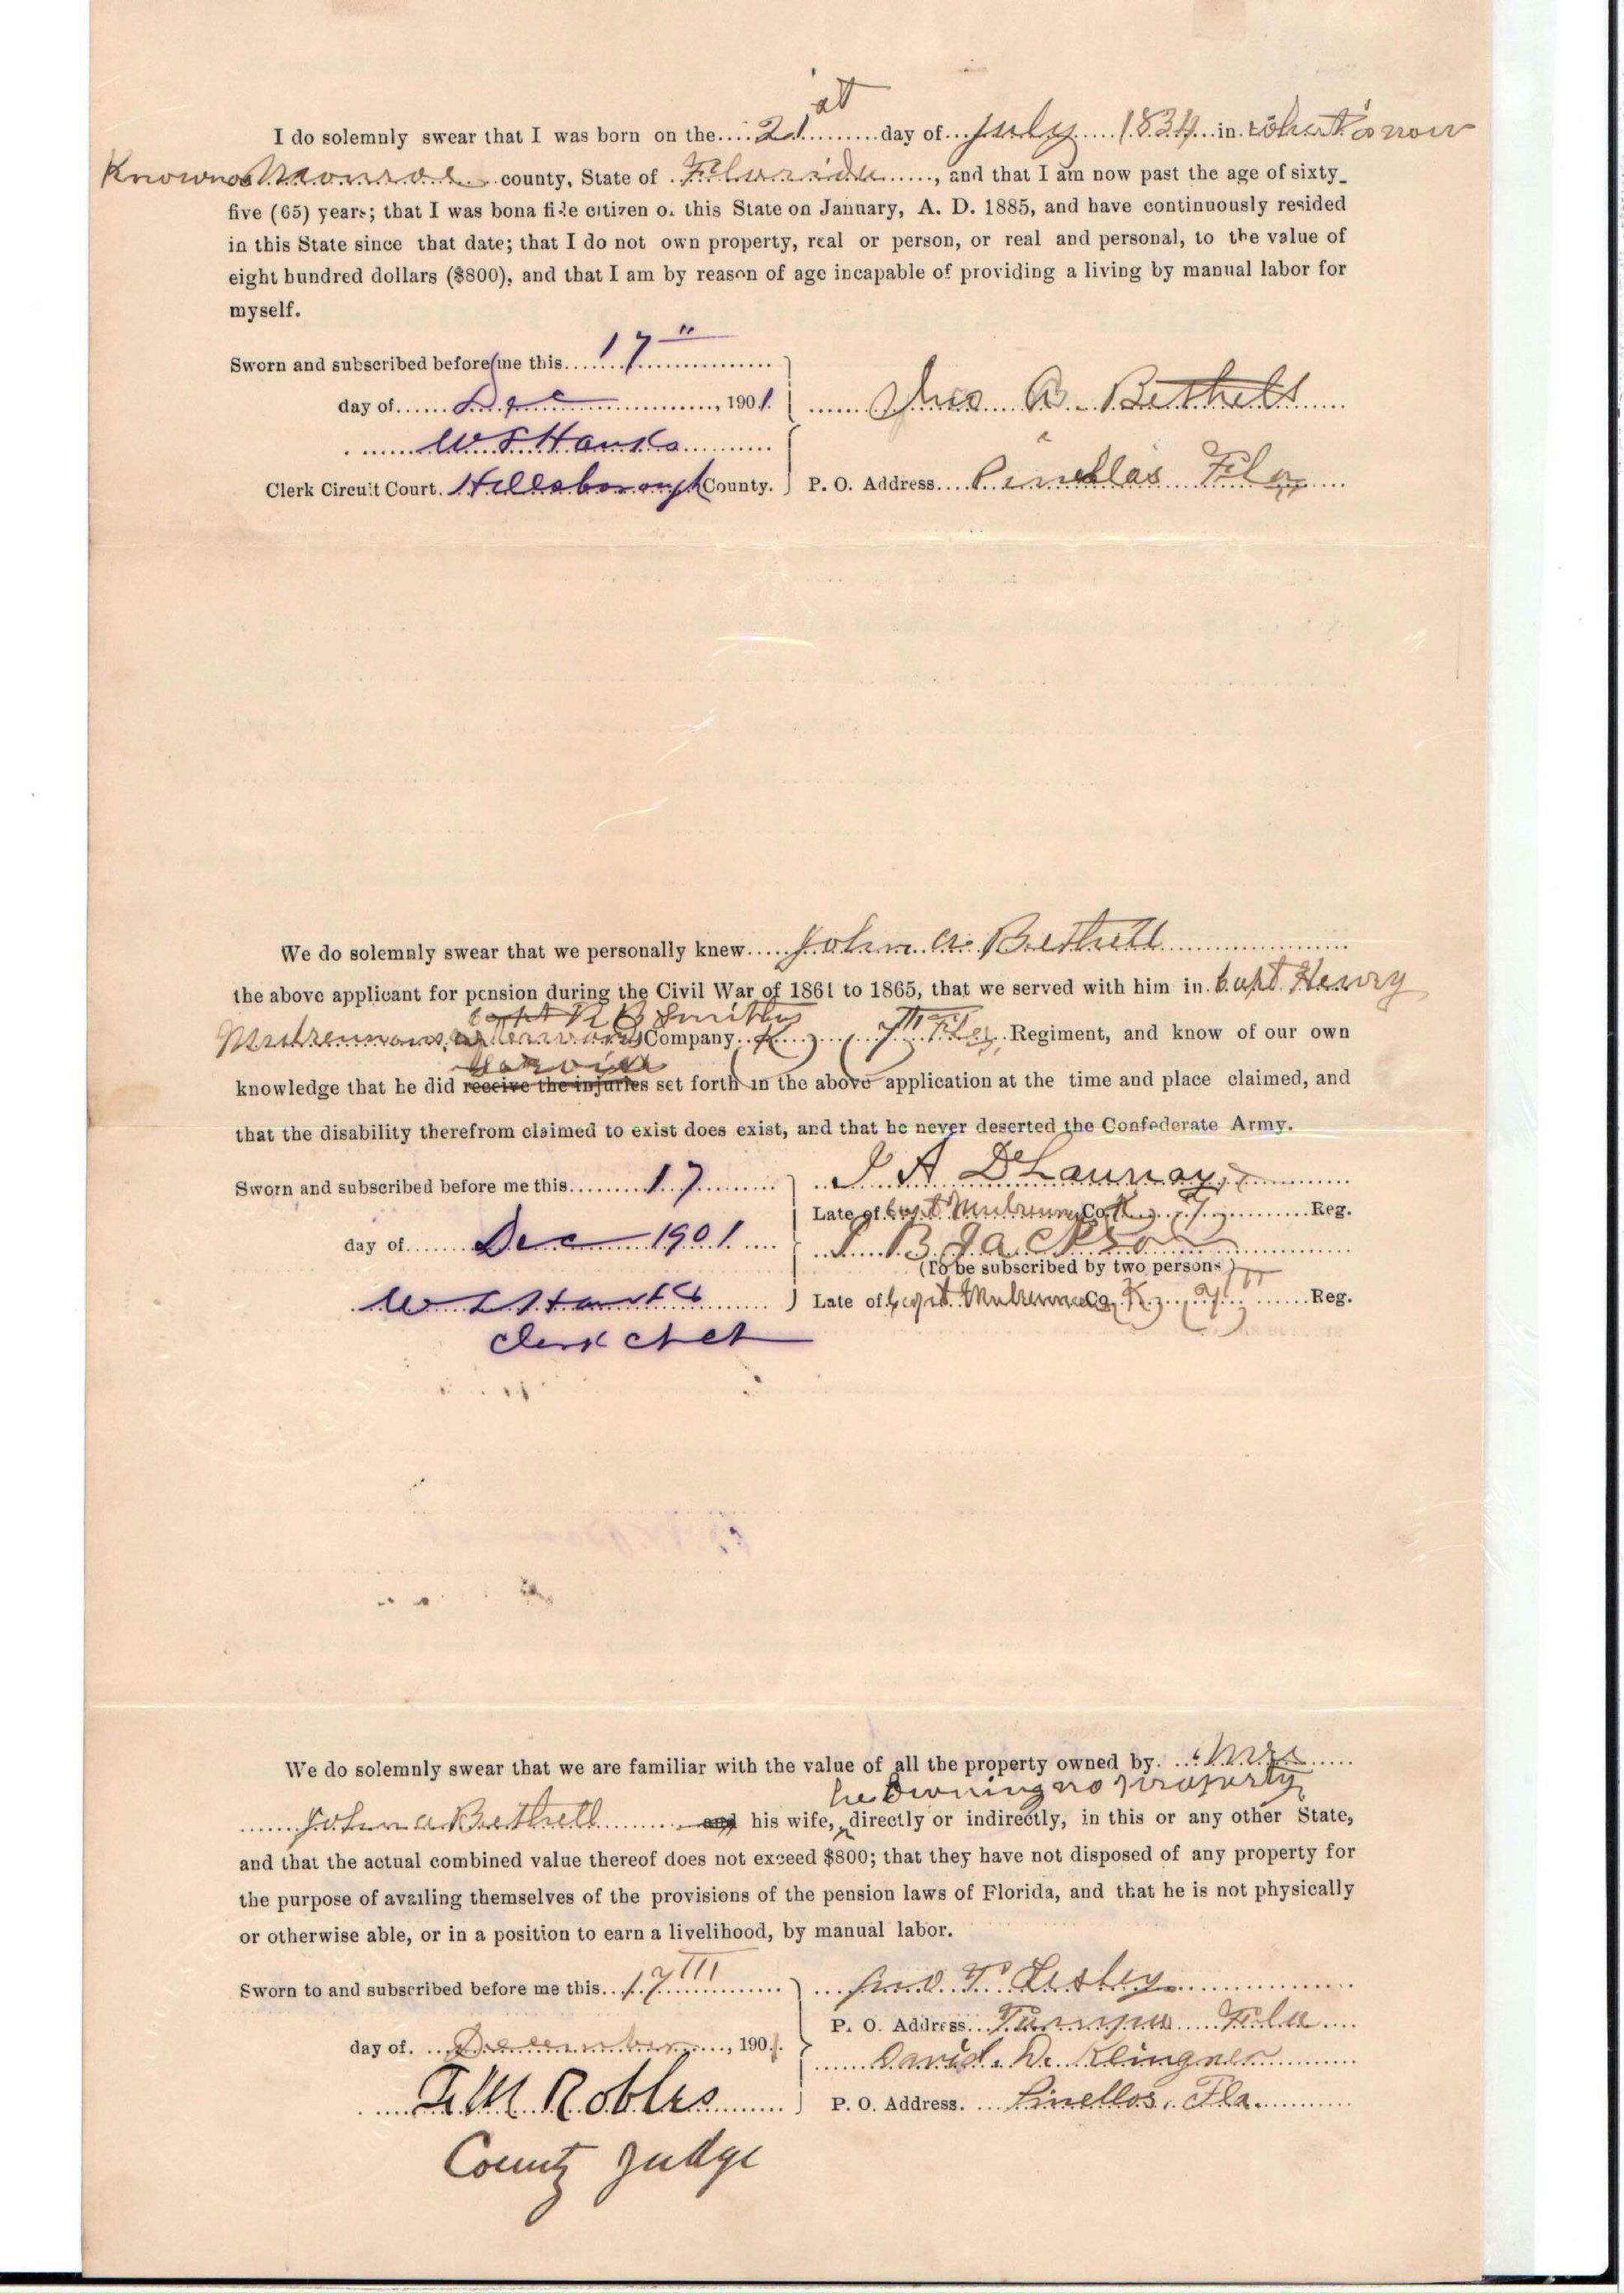 I do solemnly swear that I was born on the....21st........day of...July.....1834...in what is now
Known as Monroe county, State of Florida, and that I am now past the age of sixty_
five (65) years; that I was bona fide citizen of this State on January, A. D. 1885, and have continuously resided
in this State since that date; that I do not own property, real or person, or real and personal, to the value of
eight hundred dollars ($800), and that I am by reason of age incapable of providing a living by manual labor for
myself.
Sworn and subscribed before me this 17"
day of Dec, 1901. Jno A. Bethell
Clerk Circuit Court. Hillsborough County. P. O. Address Pinellas Fla
We do solemnly swear that we personally knew John A. Bethell
the above applicant for pension during the Civil War of 1861 to 1865, that we served with him in Capt Henry
Capt R B Smiths
Mulrennans, afterwards Company K, (7th Fla, Regiment, and know of our own
Service
knowledge that he did receive the injuries set forth in the above application at the time and place claimed, and
that the disability therefrom claimed to exist does exist, and that he never deserted the Confederate Army.
Sworn and subscribed before me this 17 J A DeLaunay
Late of Capt Mulrennan Co. K, 7, Reg.
day of Dec 1901. B Jackson
(To be subscribed by two persons)
Late of Capt Mulrennan Co. K, (7th Reg.
Clerk Ct Ct
We do solemnly swear that we are familiar with the value of all the property owned by. Mrs
he owning no property
John A Bethell and his wife, directly or indirectly, in this or any other State,
and that the actual combined value thereof does not exceed $800; that they have not disposed of any property for
the purpose of availing themselves of the provisions of the pension laws of Florida, and that he is not physically
or otherwise able, or in a position to earn a livelihood, by manual labor.
Sworn to and subscribed before me this 17th Jno. T. Lesley
P. O. Address Tampa Fla
day of December, 1901. David. W. Klingner
F. M Robles P. O. Address. Pinellos, Fla.
County Judge